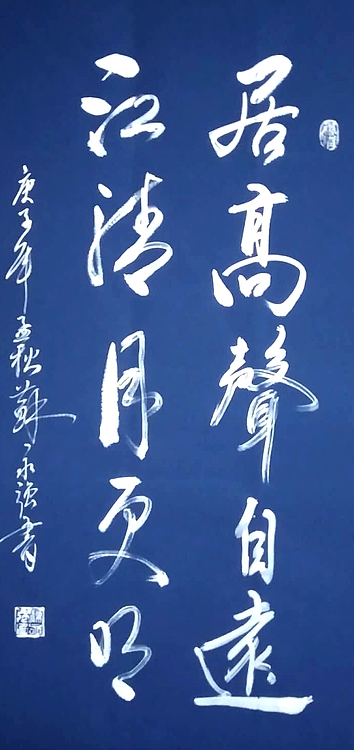 居高聲自遠
江清月更明
庚子年孟秋蘇永强書